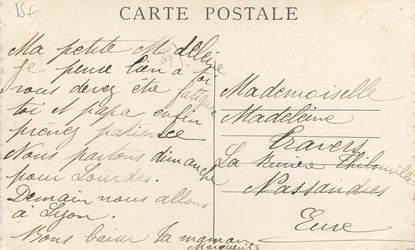 CARTE POSTALE
Ma petite Madeleine
Je pense bien à toi
vous devez être fatigués
toi et papa enfin
prenez patience
Nous partons dimanche
pour Lourdes.
Demain nous allons
à Lyon.
Bons baiser ta maman
Marguerite
Mademoiselle
Madeleine
Travers
La Rivière Thibouville
Nassandres
Eure